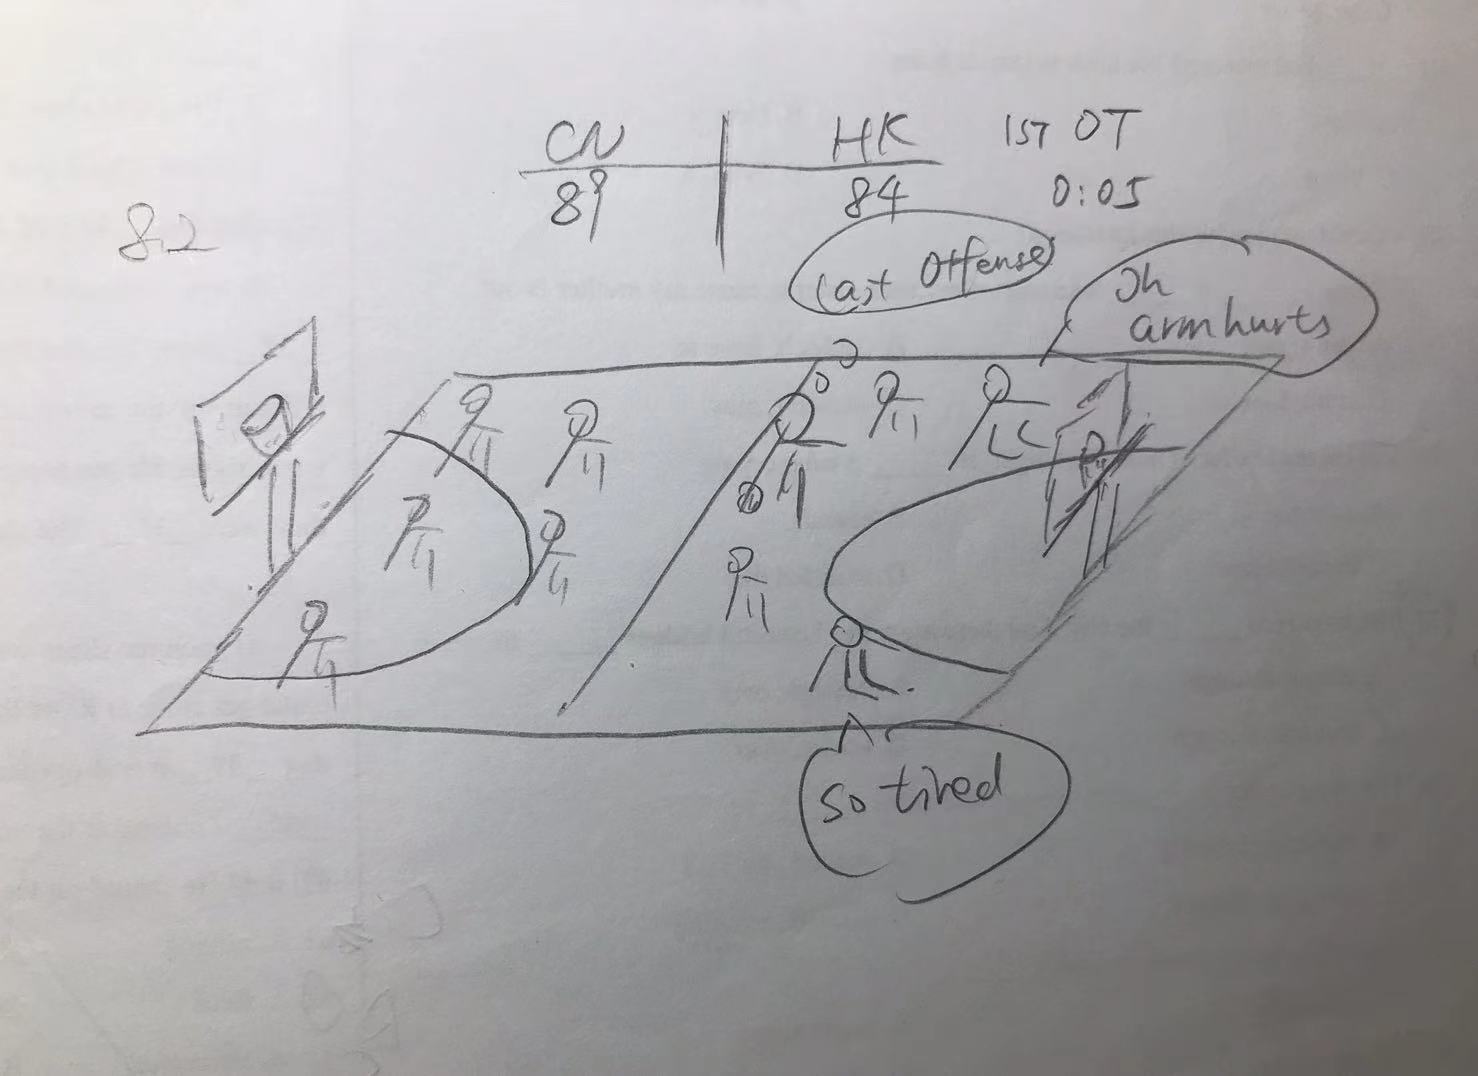 CN HK 1ST OT
89 84 0:05
82
Last Offense
Oh
arm hurts
so tired